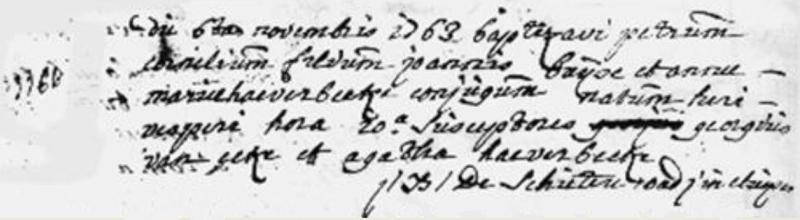 die 6ta novembris 1763 baptizavi petrum
cornilium filium joannis et annae
mariae haeverbeeke conjugum natum heri
vesperi hora 10.a susceptores georgius
van et agatha haeverbeeke
j: B: De